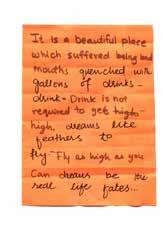 It is a beautiful place
which suffered being bad
mouths quenched with
gallons of drinks-
drink- Drink is not
required to get high-
high, dreams like
feathers to
fly- Fly as high as you
Can dreams be the
real life fates...